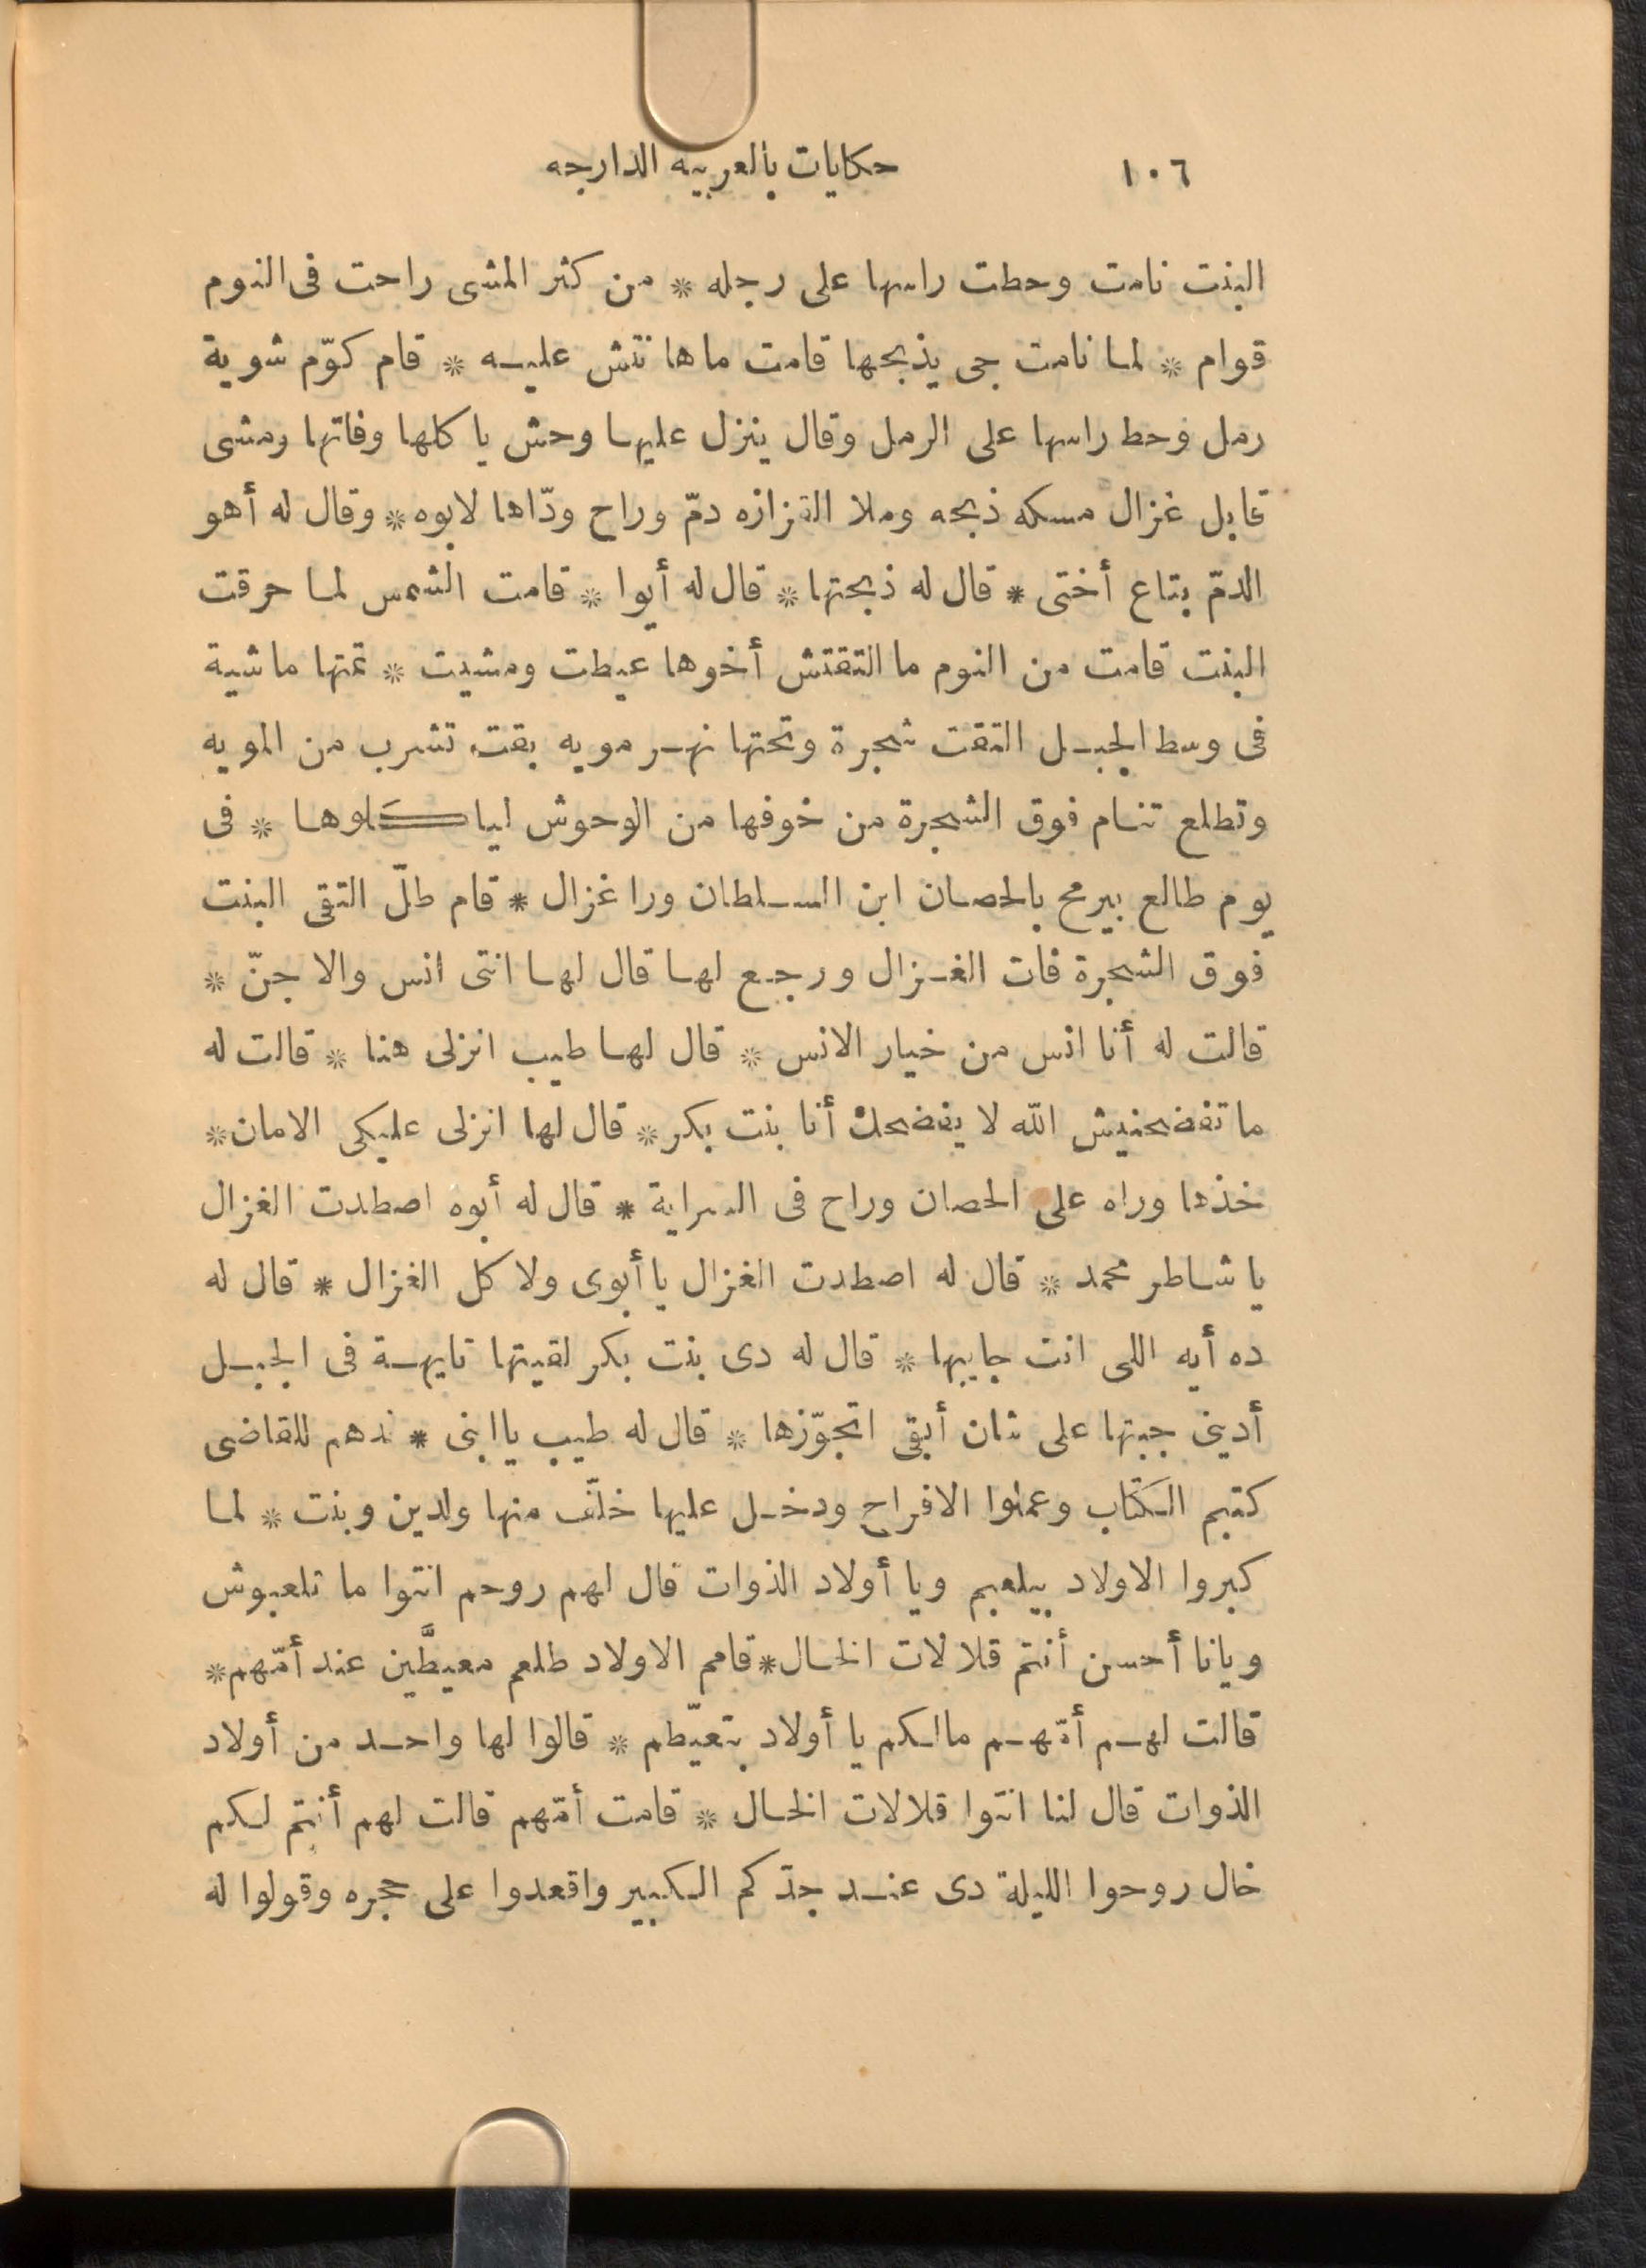 ١٠٦ حكايات بالعربيه الدارجه
البنت نامت وحطت راسها على رجله * من كثر المشى راحت فى النوم
قوام * لما نامت جى يذبحها قامت ماها نتش عليه * قام كوّم شوية
رمل وحط راسها على الرمل وقال ينزل عليها وحش يا كلها وفاتها ومشى
قابل غزال مسكه ذبحه وملا القزازه دمّ وراح ودّاها لابوه * وقال له أهو
الدمّ بتاع أختى * قال له ذبحتها * قال له أيوا * قامت الشمس لما حرقت
البنت قامت من النوم ما التقتش أخوها عيطت ومشيت * تمتها ماشية
فى وسط الجبل التقت شجرة وتحتها نهر مويه بقت تشرب من المويه
وتطلع تنام فوق الشجرة من خوفها من الوحوش لياكلوها * فى
يوم طالع بيرمح بالحصان ابن السلطان ورا غزال * قام طلّ التقى البنت
فوق الشجرة فات الغزال ورجع لها قال لها انتى انس والا جنّ *
قالت له أنا انس من خيار الانس * قال لها طيب انزلى هنا * قالت له
ما تفضحنيش الله لا يفضحك أنا بنت بكر * قال لها انزلى عليكى الامان *
خذها وراه على الحصان وراح فى السراية * قال له أبوه اصطدت الغزال
يا شاطر محمد * قال له اصطدت الغزال يا أبوى ولا كل الغزال * قال له
ده أيه اللى انت جايبها * قال له دى بنت بكر لقيتها تايهة فى الجبل
أدينى جبتها على شان أبقى اتجوّزها * قال له طيب يا ابنى * ندهم للقاضى
كتبم الكتاب وعملوا الافراح ودخل عليها خلّف منها ولدين وبنت * لما
كبروا الاولاد بيلعبم ويا أولاد الذوات قال لهم روحم انتوا ما تلعبوش
ويانا أحسن أنتم قلالات الخال * قامم الاولاد طلعم معيطَّين عند أمّهم *
قالت لهم أمّهم مالكم يا أولاد بتعيّطم * قالوا لها واحد من أولاد
الذوات قال لنا انتوا قلالات الخال * قامت أمّهم قالت لهم أنتم لكم
خال روحوا الليلة دى عند جدّكم الكبير واقعدوا على حجره وقولوا له